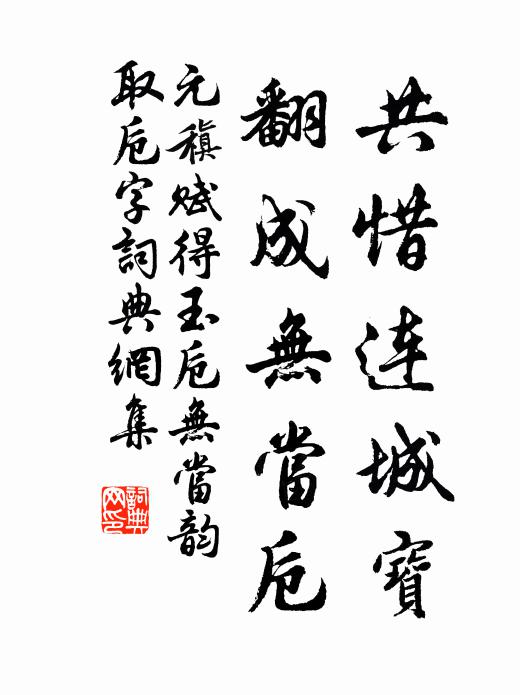 共惜連城寶
翻成無當卮
元稹賦得玉卮無當韵
取卮字詞典網集
詞典网印